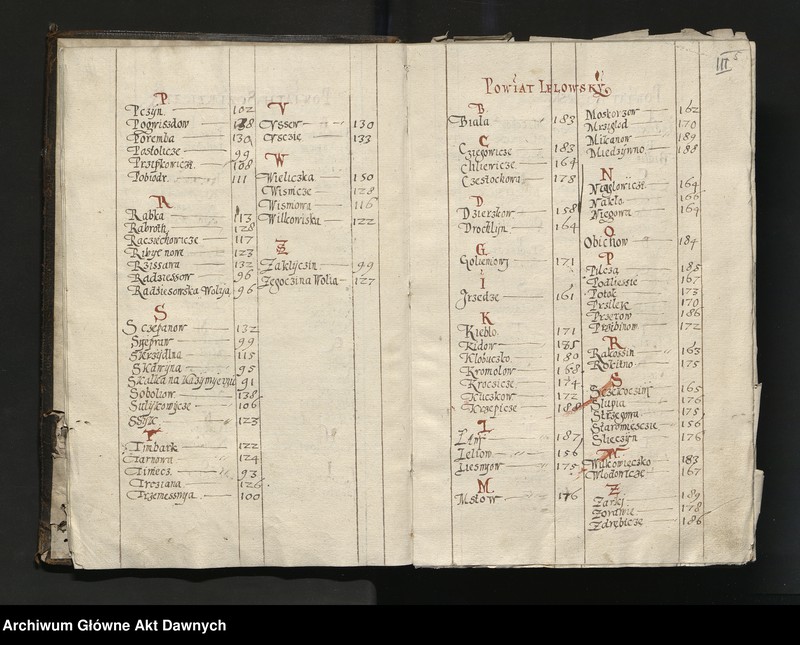 P
Pczyn 102
Pogwisdow
Poremba 130
Pastolicze 99
Przipkowicze 108
Pobiodr 111
R
Rabka 113
Rabroth 128
Racziechowicze 117
Ribye nowa 123
Rzissawa 132
Radziessow 96
Radziesowska Wolya 96
S
Sczepanow 132
Syepraw 99
Skrzydlna 115
Skawyna 95
Skalka na Kazymyerzu 91
Sobolow 138
Sulykowycze 106
123
T
Timbark 122
Tarnowa 124
Timecz 93
Trosiana 126
Trzemessnya 100
V
Vssew 130
Vsczie 133
W
Wieliczka 150
Wismicze 128
Wismowa 116
Wilkowiska 122
Z
Zaklyczin 99
Zegoczina Wolia 127
Powiat Lelowsky
III
5
B
Biala 183
C
Czięgowicze 183
Chliewicze 164
Częstochowa 178
D
Dzierzkow 158
Drochlyn 164
G
Golieniowy 171
I
Irzedze 161
K
Kieblo 171
Kidow 185
Klobuczko 180
Kromolow 168
Kroczicze 174
Kuczkow 172
Krzepicze 188
L
187
Lellow 156
Liesnyow 175
M
Mstow 176
Moskorzow 162
Mrziglod 170
Milianow 189
Miedzywno 188
N
Naglowicze 164
Naklo 166
Niegowa 164
O
Obichow 184
P
Pilcza 185
Podliessie 167
Potok 173
Przilęk 170
Przerow 186
Przibinow 172
R
Rakossin 163
Rokitno 175
S
Seczkoczin 165
Slupia 176
Strzegowa 175
Staromiesczie 156
Sliecziyn 176
W
Wilkowieczko 183
Wlodowicze 167
Z
Zarki 189
Zorawie 178
Zdrębicze 186
Archiwum Główne Akt Dawnych